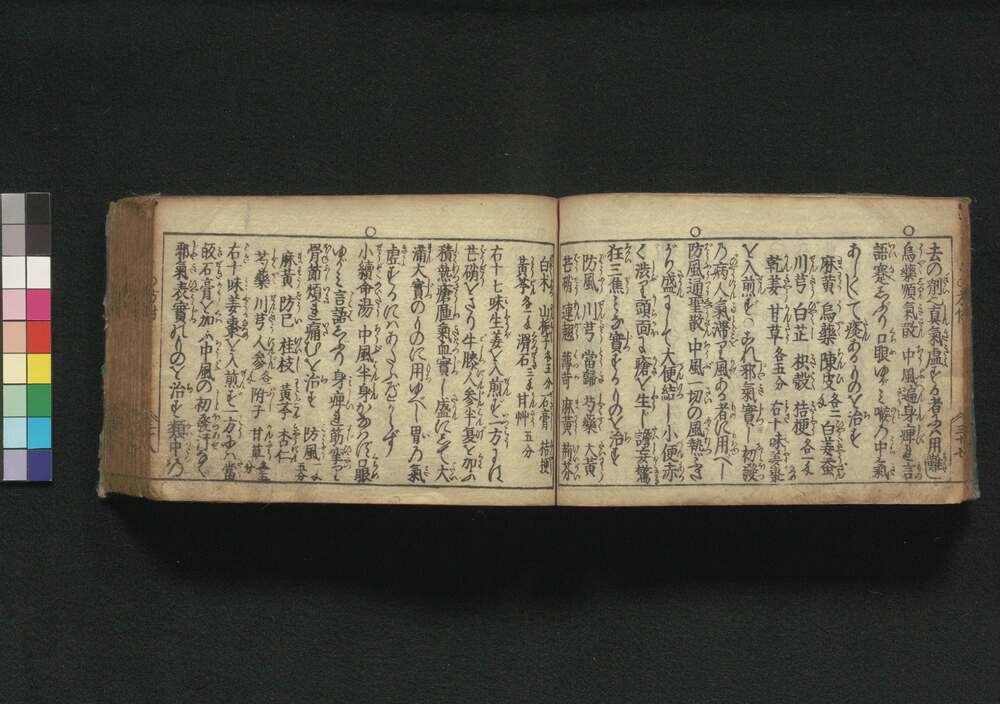 去の剤ハ真氣虚する者にハ用難し
烏藥順氣散 中風遍身痺れ言
語蹇しぶり口眼ゆがミ喉の中氣
あらくして痰あるものを治す
麻黄 烏藥 陳皮各二 白姜蚕
川芎 白芷 枳殻 桔梗各一匁
乾姜 甘草各五分 右十味姜棗
を入煎ず 邪氣實し初發
の病人氣滞りて風ある者に用べし
防風通聖散 中風一切の風熱さ
かり盛にして大便結し小便赤
く渋りて頭面に瘡を生じ譫妄驚
狂三焦ミな實するものを治す
防風 川芎 當歸 芍藥 大黄
芒硝 連翹 薄荷 麻黄 荊芥
白朮 山梔子各五分 石膏 桔梗
黄芩各一匁 滑石三匁 甘艸五分
右十七味生姜を入煎ず一方にハ
芒硝をさり牛膝人参半夏を加ふ
積熱瘡腫氣血實し盛にして大
満大實のものに用ゆべし胃の氣
虚するにハあたふべからず
小續命湯 中風半身かなハず口眼
ゆがミ言語しぶり身痺れ筋攣り
骨節煩き痛むを治す 防風一匁五分
麻黄 防已 桂枝 黄芩 杏仁
芍藥 川芎 人参各 附子 甘草五分
右十味姜棗を入煎ず一方にハ當
皈石膏を加ふ中風の初發汗なく
邪氣表實のものを治す類中の
三十七